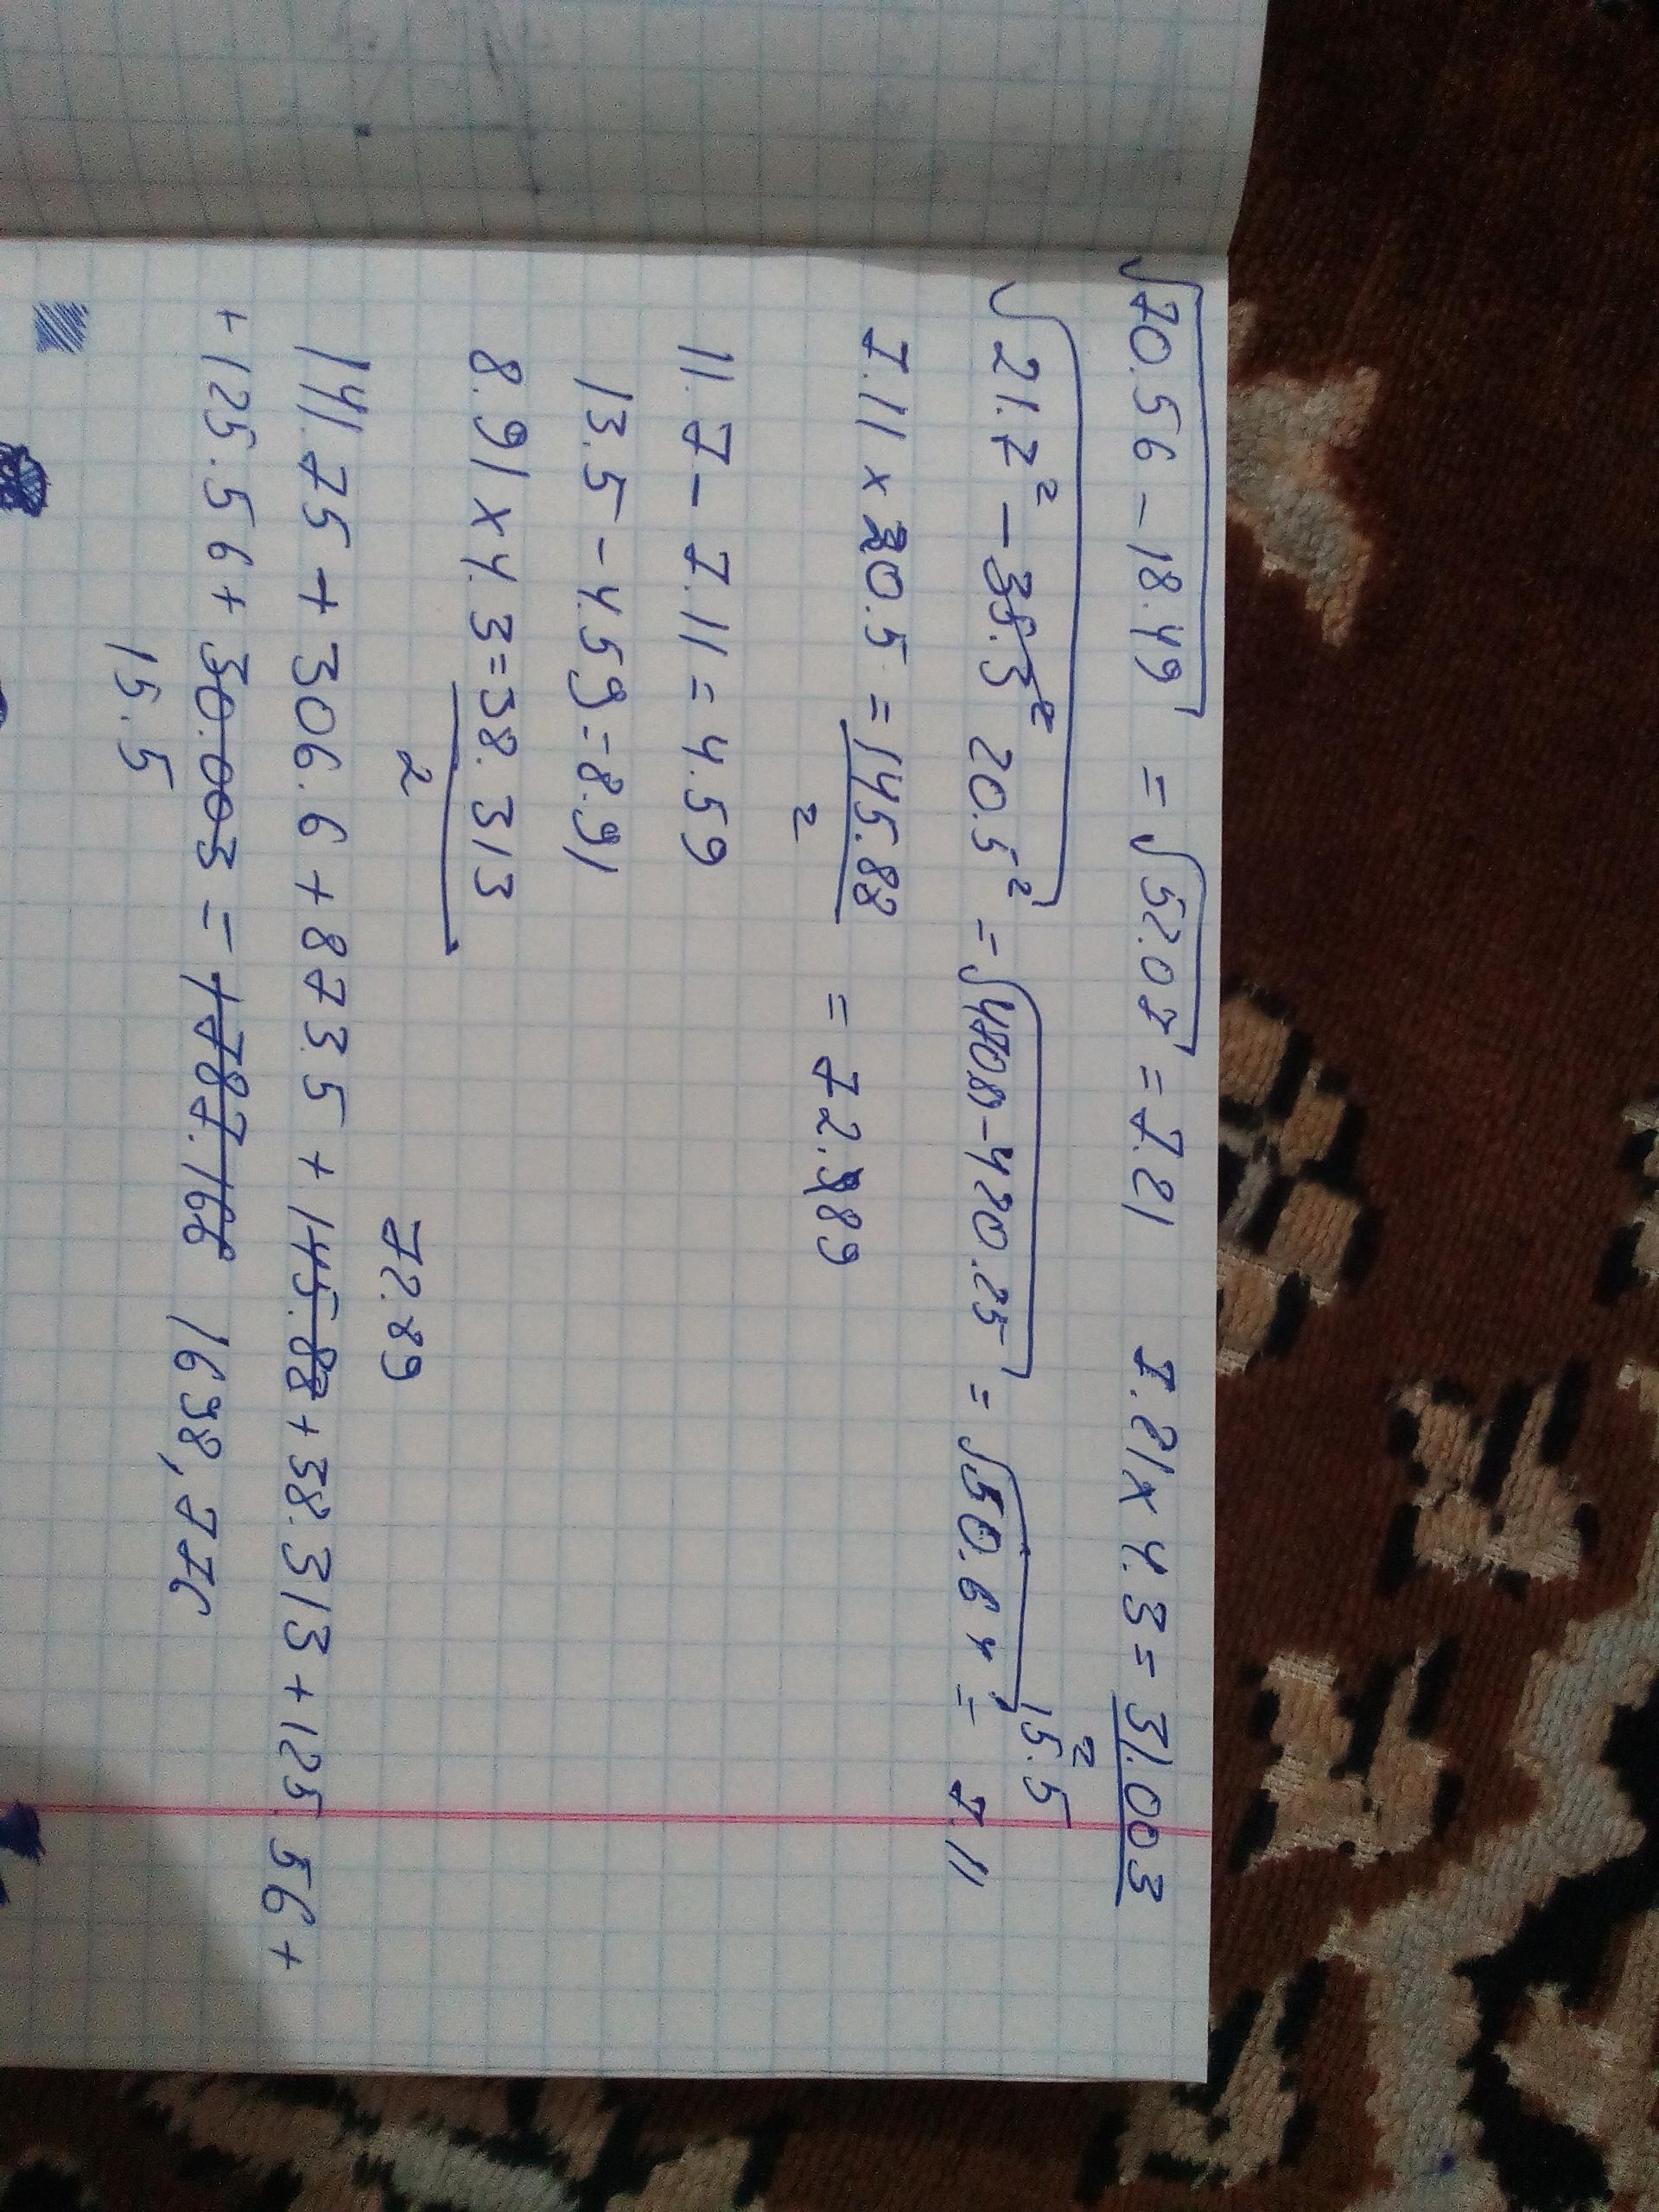 √70.56 - 18.49 = √52.07 = 7.21 7.21 x 4.3 = 31.003
2
15.5
√21.7² - 35.3² 20.5² = √470.89 - 420.25 = √50.64 = 7.11
7.11 x 20.5 = 145.88
2
= 72.989
11.7 - 7.11 = 4.59
13.5 - 4.59 = 8.91
8.91 x 4.3 = 38.313
2
72.89
141.75 + 306.6 + 873.5 + 145.88 + 38.313 + 125.56 +
+ 125.56 + 30.003 = 1787.166 1698,776
15.5